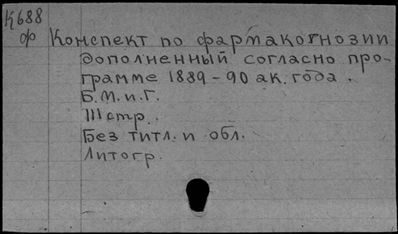 К688
ф Конспект по фармакогнозии
дополненный согласно про-
грамме 1889-90 ак. года.
Б.М.и.Г.
111 стр.
Без титл. и обл.
Литогр.